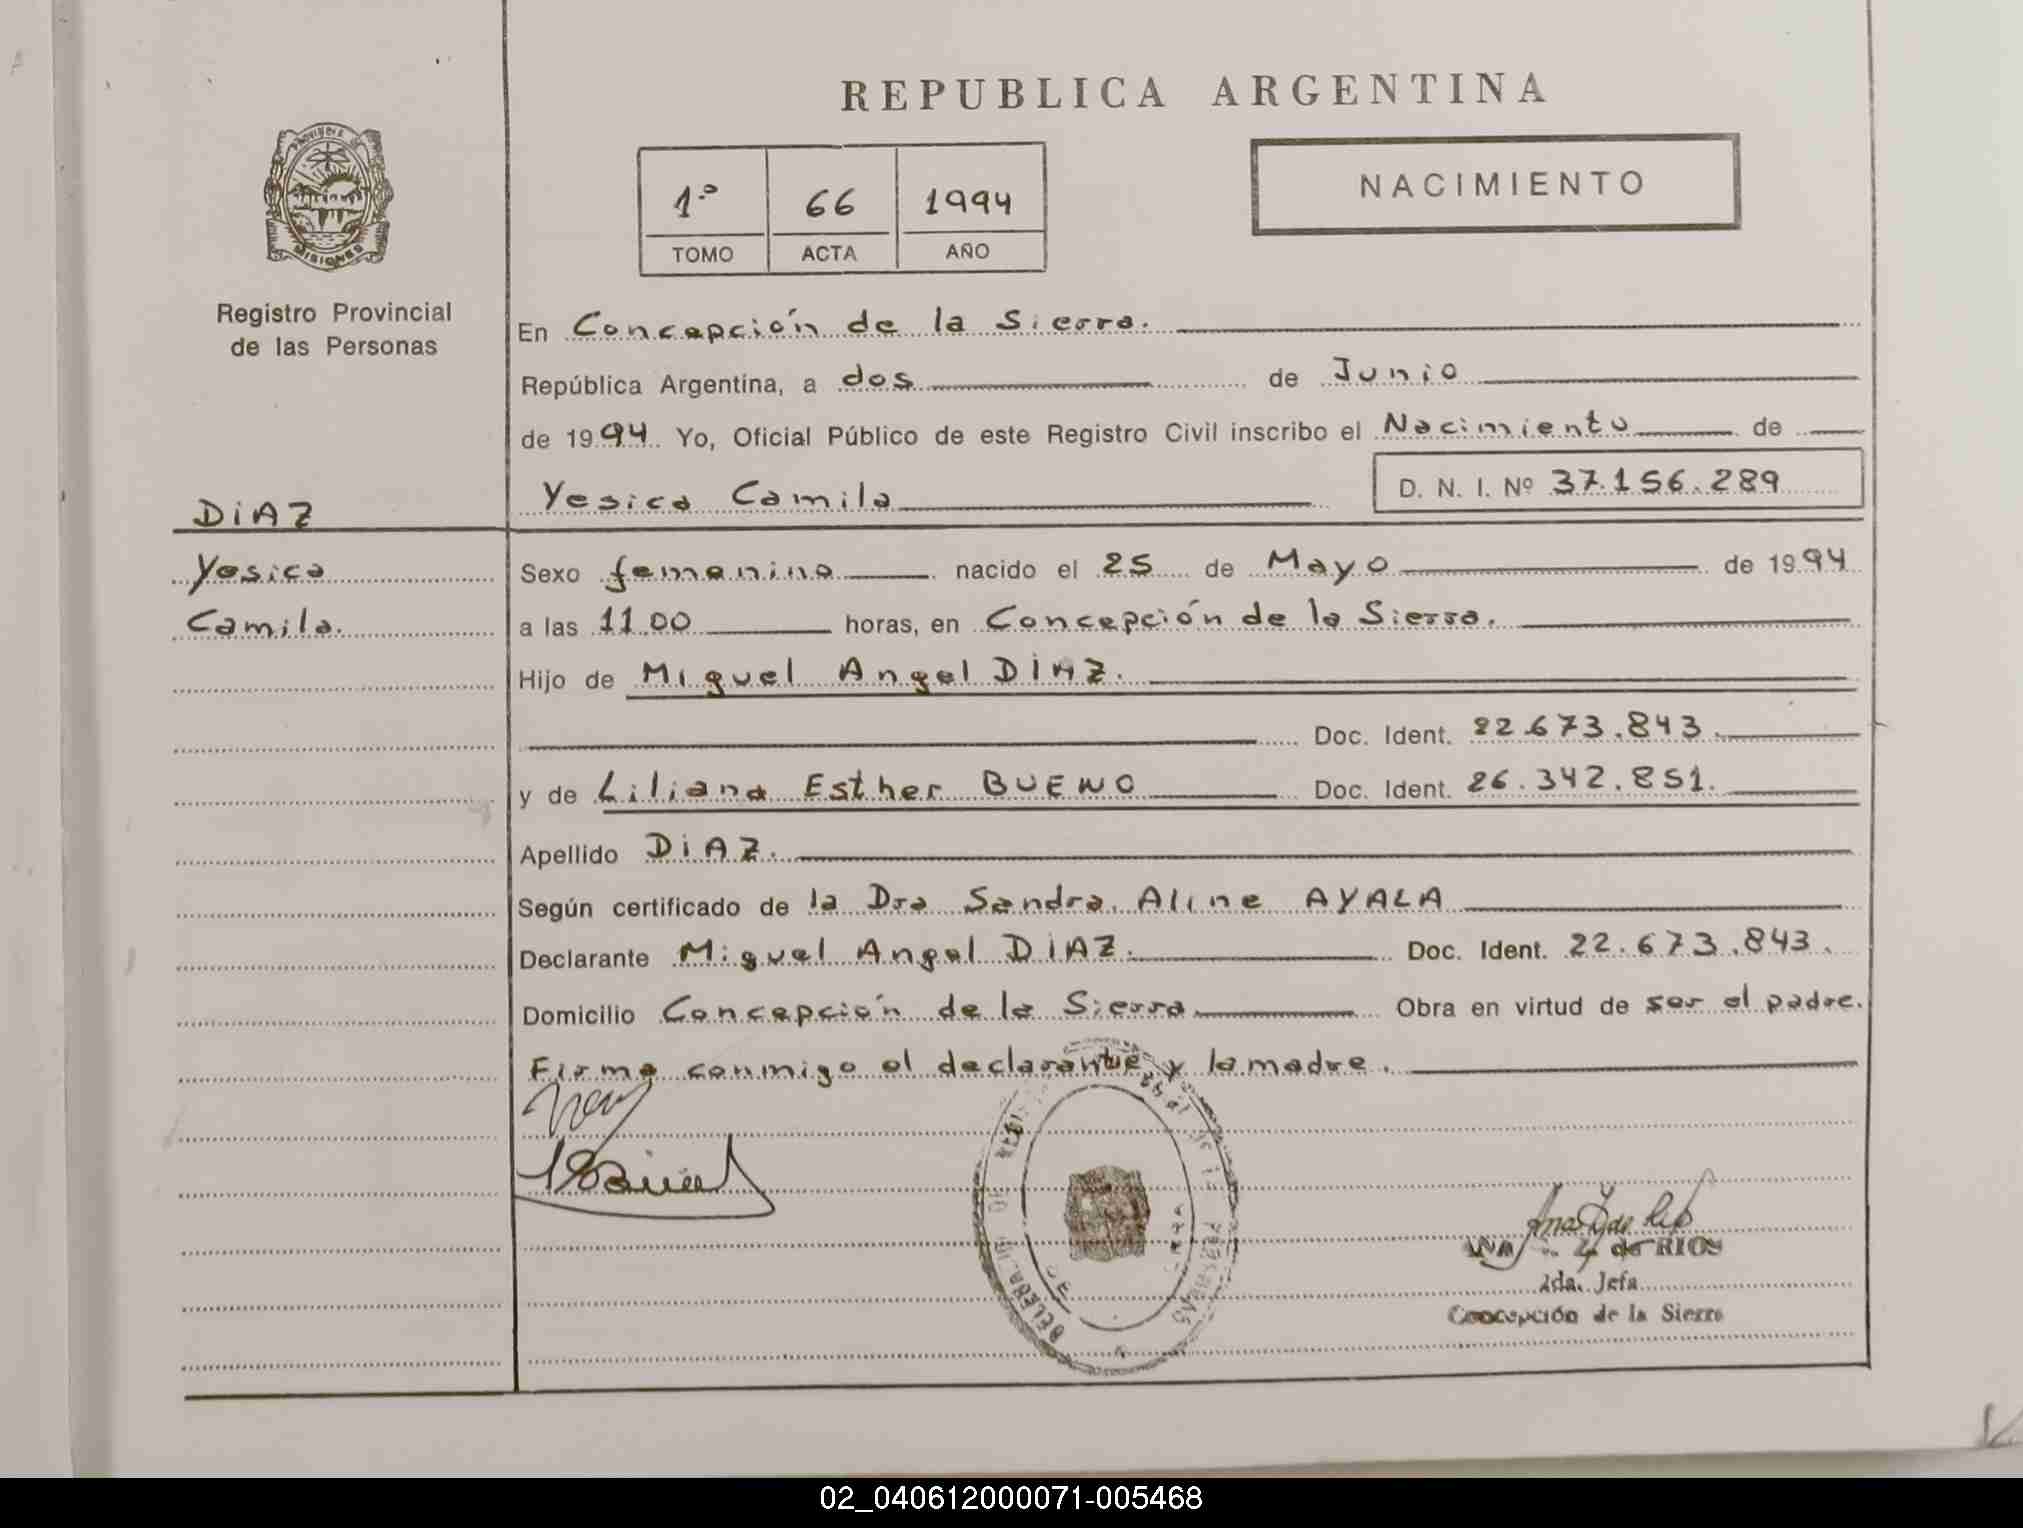 REPUBLICA ARGENTINA
Provincia de
MISIONES
Registro Provincial
de las Personas
1.º 66 1994
TOMO ACTA AÑO
NACIMIENTO
En Concepción de la Sierra.
República Argentina, a dos de Junio
de 1994 Yo, Oficial Público de este Registro Civil inscribo el Nacimiento de
Yesica Camila D. N. I. Nº 37.156.289
DIAZ
Yesica
Camila.
Sexo femenino nacido el 25 de Mayo de 1994
a las 11.00 horas, en Concepción de la Sierra.
Hijo de Miguel Angel DIAZ.
Doc. Ident. 22.673.843
y de Liliana Esther BUENO Doc. Ident. 26.342.851.
Apellido DIAZ.
Según certificado de la Dra Sandra Aline AYALA
Declarante Miguel Angel DIAZ. Doc. Ident. 22.673.843.
Domicilio Concepción de la Sierra Obra en virtud de ser el padre.
Firma conmigo el declarante y la madre.
de RIOS
2da. Jefa
Concepción de la Sierra
02_040612000071-005468